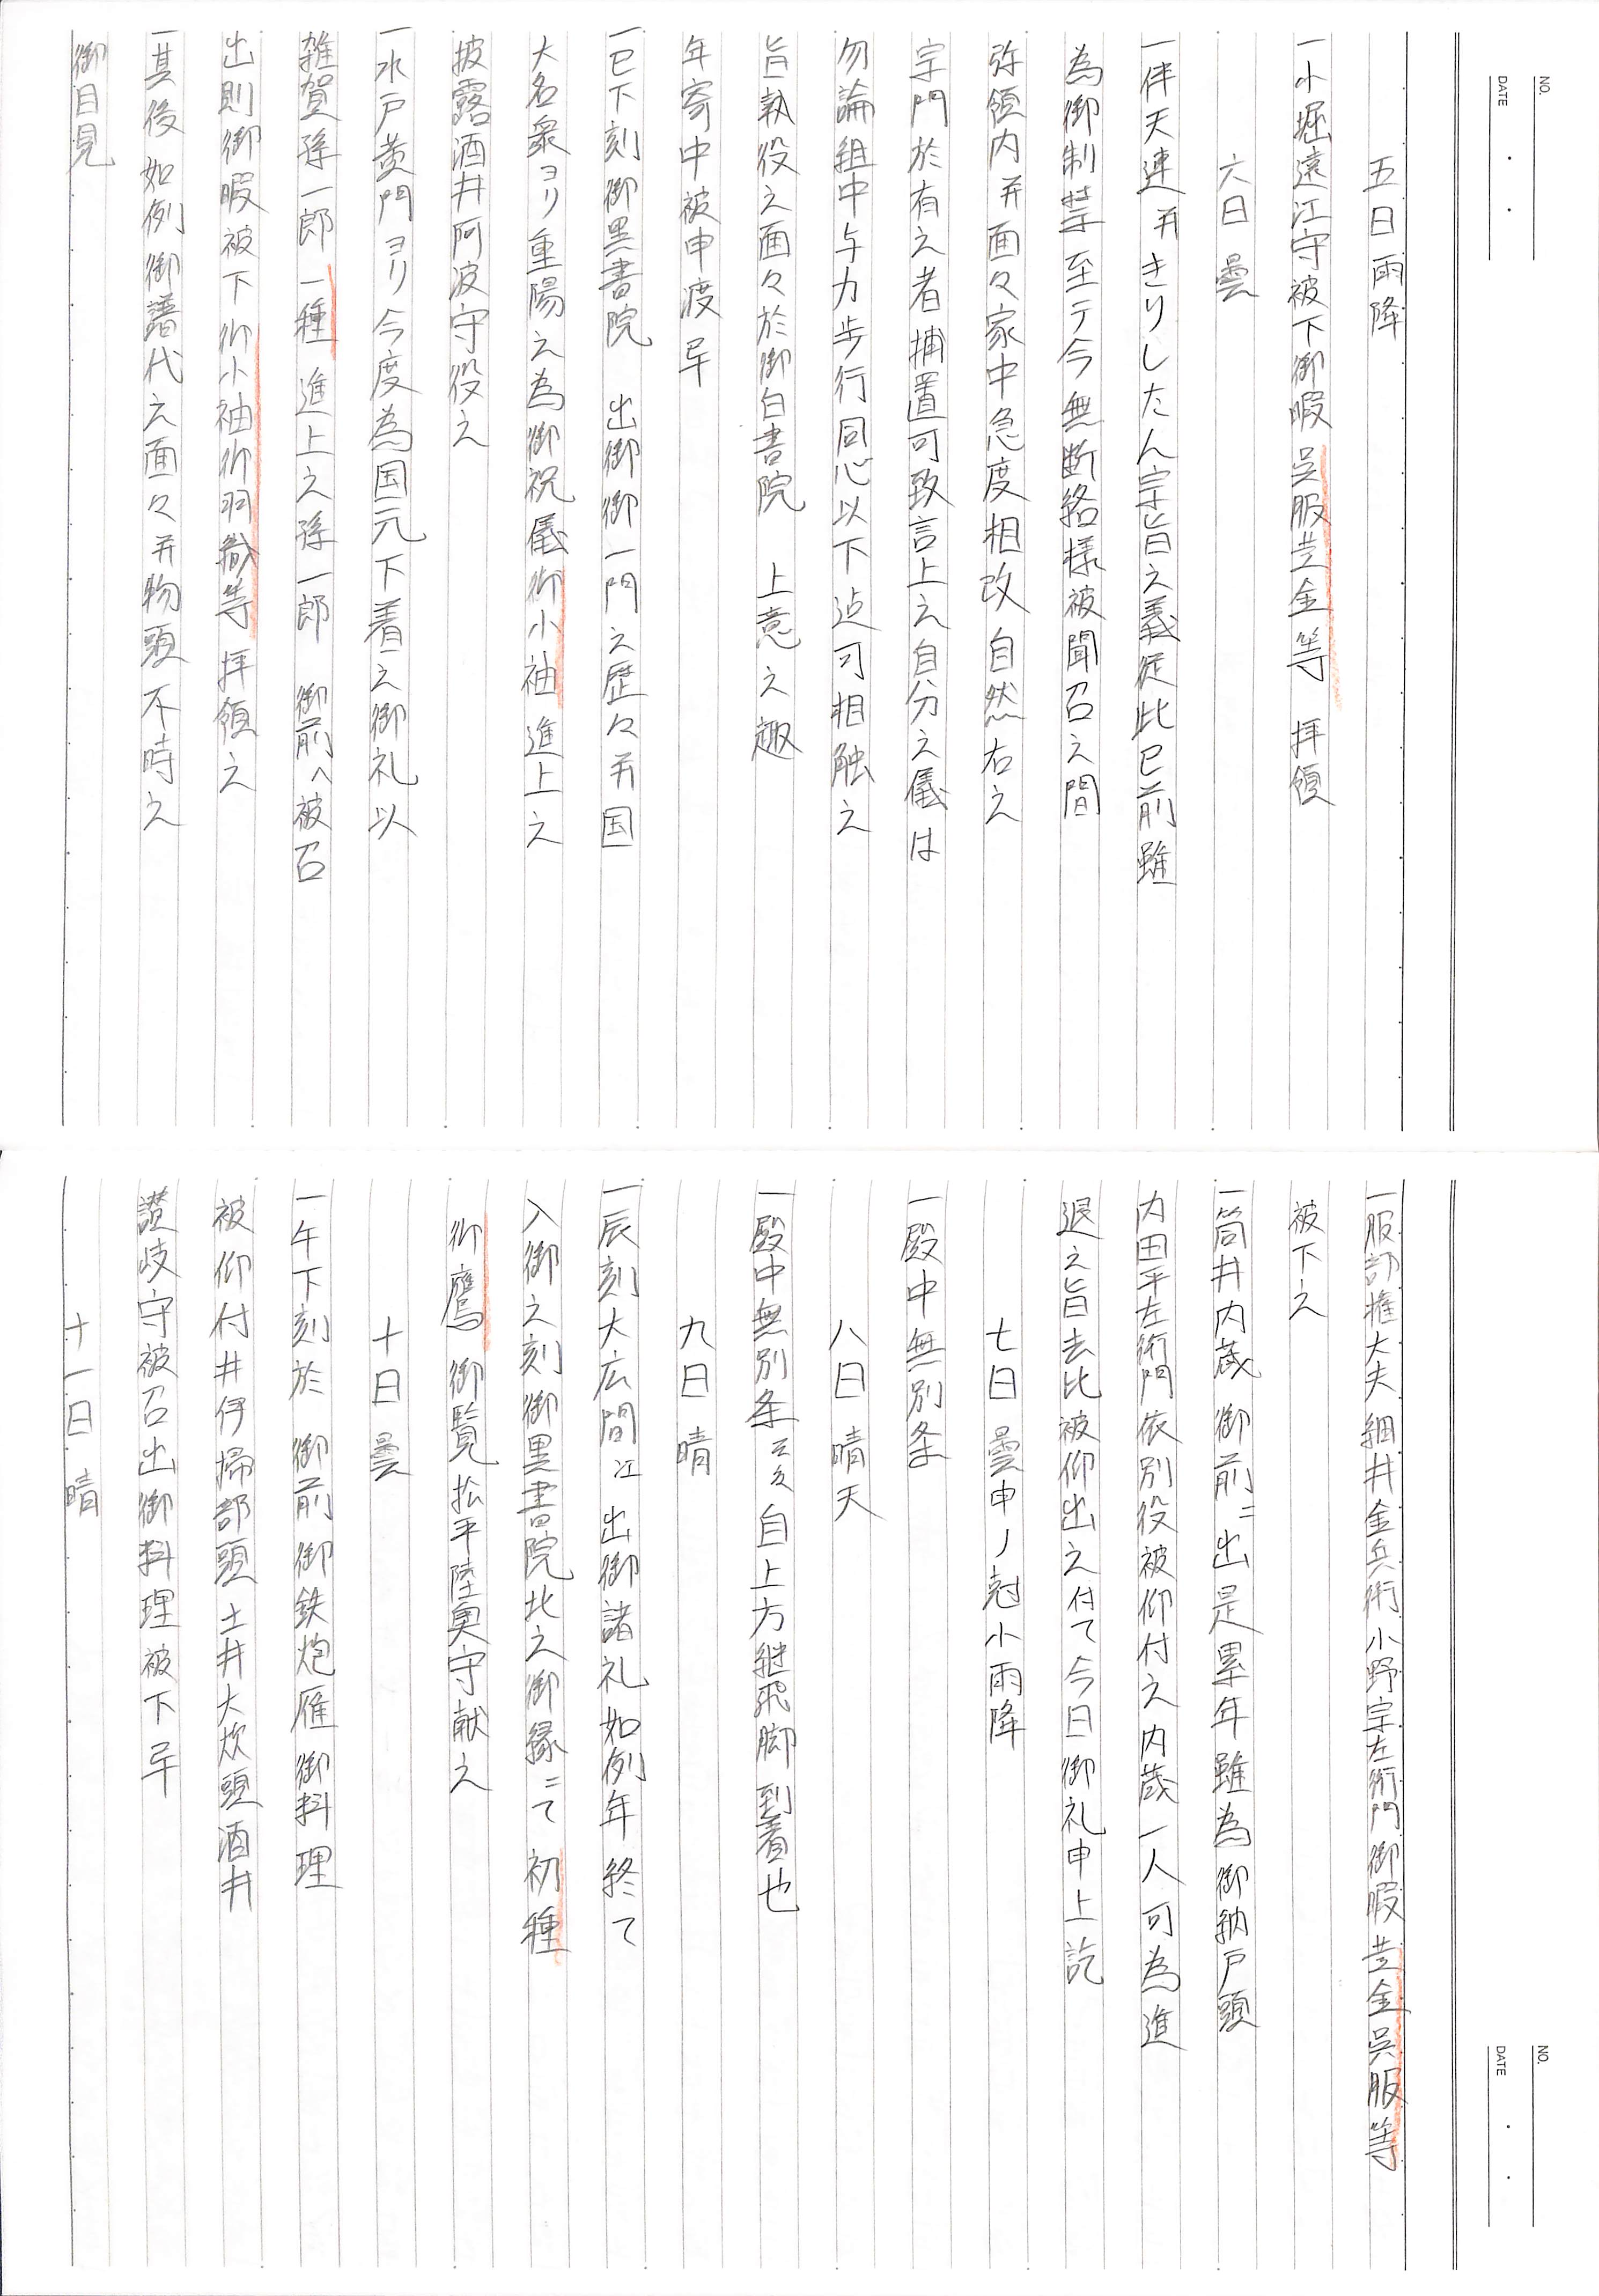 NO.
DATE
五日 雨降
一小堀遠江守被下御暇 呉服黄金等 拝領
六日 曇
一伴天連并きりしたん宗旨之義従此已前雖
為御制禁至テ今無断絡様被聞召之間
弥領内并面々家中急度相改 自然右之
宗門於有之者捕置可致言上之自分之儀は
勿論組中与力歩行同心以下迠可相触之
旨執役之面々於御白書院 上意之趣
年寄中被申渡畢
一已下刻御黒書院 出御御一門之歴々并国
大名衆ヨリ重陽之為御祝儀御小袖進上之
披露酒井阿波守役之
一水戸黄門ヨリ今度為国元下着之御礼以
雑賀孫一郎一種 進上之孫一郎 御前へ被召
出則御暇被下御小袖御羽織等 拝領之
一其後如例御譜代之面々并物頭不時之
御目見
NO.
DATE
一服部権大夫細井金兵衛小野宗左衛門御暇黄金呉服等
被下之
一筒井内蔵 御前ニ出是累年雖為御納戸頭
内田平左衛門依別役被仰付之内蔵一人可為進
退之旨去比被仰出之付て今日御礼申上訖
七日 曇申ノ尅小雨降
一殿中無別条
八日 晴天
一殿中無別条云々自上方継飛脚到着也
九日 晴
一辰刻大広間江 出御諸礼如例年終て
入御之刻御黒書院北之御縁ニて初種
御鷹 御覧松平陸奥守献之
十日 曇
一午下刻於 御前御鉄炮雁御料理
被仰付井伊掃部頭土井大炊頭酒井
讃岐守被召出御料理被下畢
十一日 晴